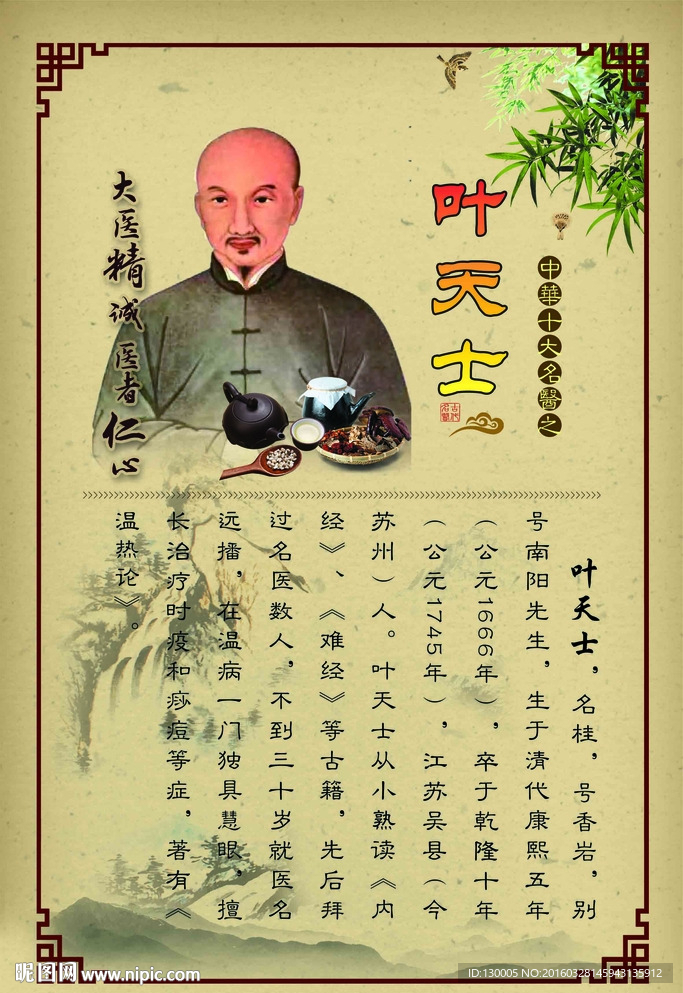 中華十大名醫之
叶天士
古代名醫
大医精诚医者仁心
叶天士，名桂，号香岩，别
号南阳先生，生于清代康熙五年
（公元1666年），卒于乾隆十年
（公元1745年），江苏吴县（今
苏州）人。叶天士从小熟读《内
经》、《难经》等古籍，先后拜
过名医数人，不到三十岁就医名
远播，在温病一门独具慧眼，擅
长治疗时疫和痧痘等症，著有《
温热论》。
昵图网 www.nipic.com
ID:130005 NO:20160328145943135912